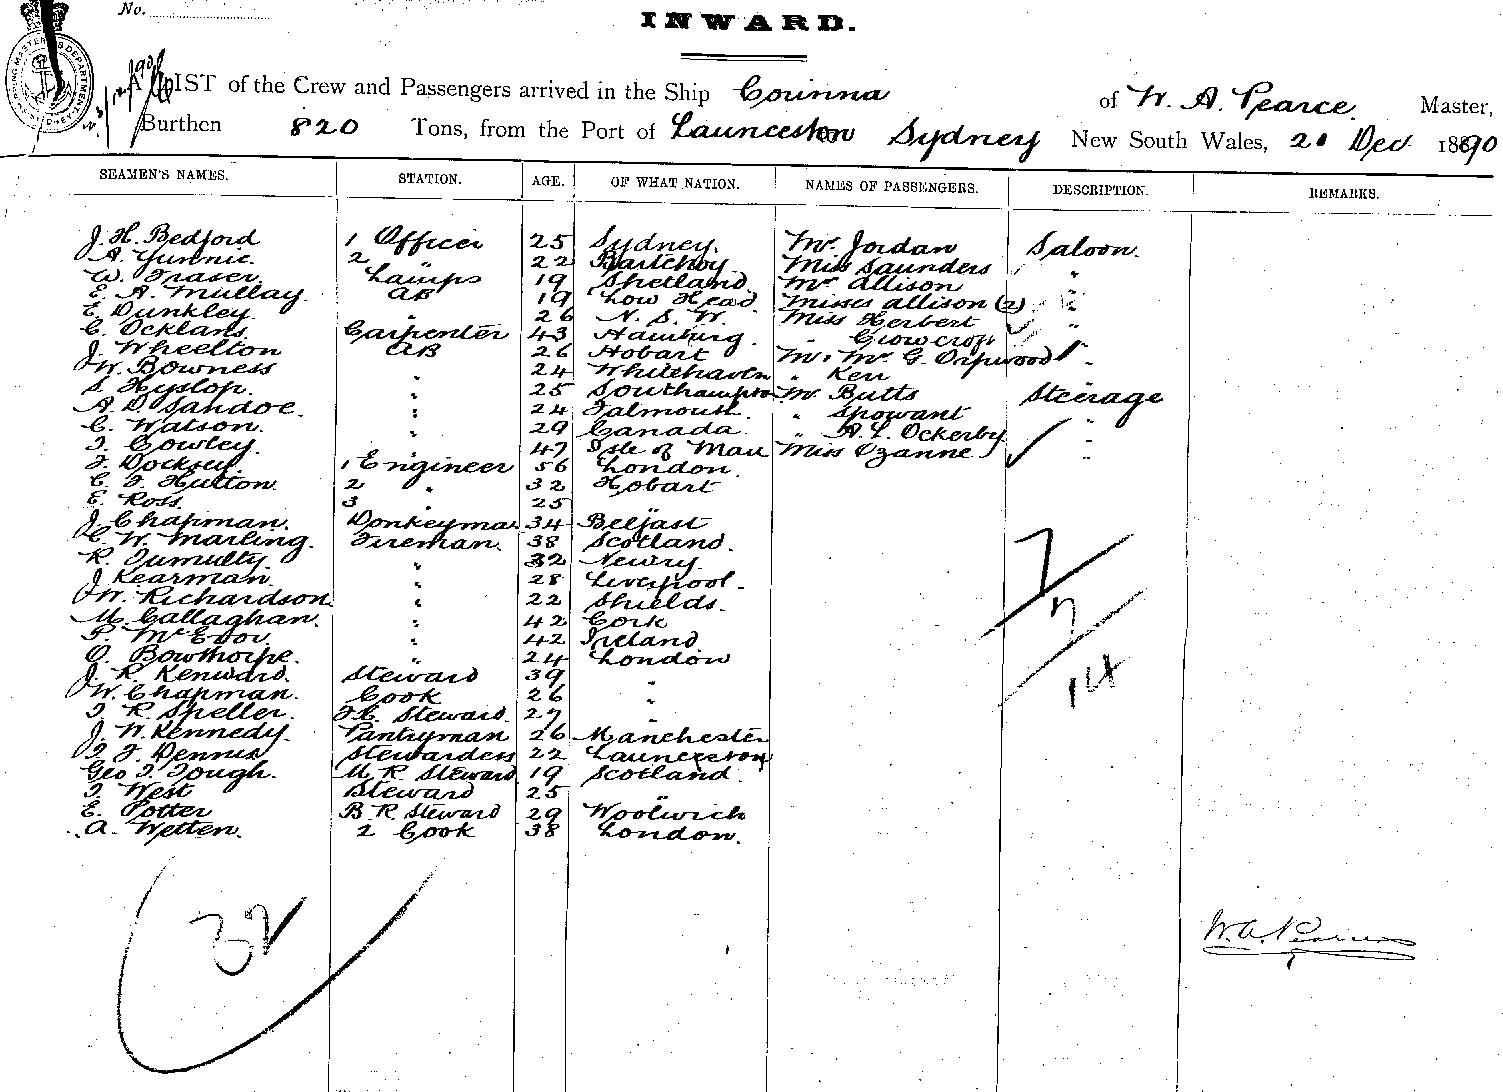 No.
INWARD.
A LIST of the Crew and Passengers arrived in the Ship Corinna of W. A. Pearce Master,
Burthen 820 Tons, from the Port of Launceston Sydney New South Wales, 20 Dec 1890
SEAMEN'S NAMES. STATION. AGE. OF WHAT NATION. NAMES OF PASSENGERS. DESCRIPTION. REMARKS.
J. H. Bedford 1 Officer 25 Sydney. Mr Jordan Saloon.
A. 2 " 22 Miss Saunders "
W. Fraser Lamps 19 Shetland Mr Allison "
E. A. Mullay. AB 19 Low Head. Misses Allison (2) "
E. Dunkley. " 26 N. S. W. Miss Herbert "
C. Ocklans Carpenter 43 Hamburg. " Growcroft "
J. Wheelton AB 26 Hobart Mr. Mr. G. Orpwood "
W. Bowness " 24 Whitehaven " Kerr
S. Hyslop. " 25 Southampton Mr Butts Steerage
A. D. Sandoe. " 24 Falmouth. " Spowart "
C. Watson. " 29 Canada. " A. L. Ockerby "
T. Cowley. 47 Isle of Man Miss Ozanne "
F. Docksey. 1 Engineer 56 London.
C. F. Hutton. 2 " 32 Hobart
E. Ross. 3 25 "
J. Chapman. Donkeyman 34 Belfast
C. W. Marling. Fireman. 38 Scotland.
R. Dumulty. " 32 Newry.
J. Kearman. " 28 Liverpool.
W. Richardson " 22 Shields.
M. Callaghan. " 42 Cork
P. McEvoy. " 42 Ireland
O. Bowthorpe. " 24 London
J. R. Kenward. Steward 39 "
W. Chapman. Cook 26 "
T. R. Speller. Steward. 27 "
J. W. Kennedy. Pantryman 26 Manchester
T. F. Dennis Stewardess 22 Launceston
Geo T. Tough. M. R. Steward 19 Scotland.
T. West Steward 25 "
E. Potter B R Steward 29 Woolwich
A. Wetten. 2 Cook 38 London.
7
7
14
32
W. A. Pearce